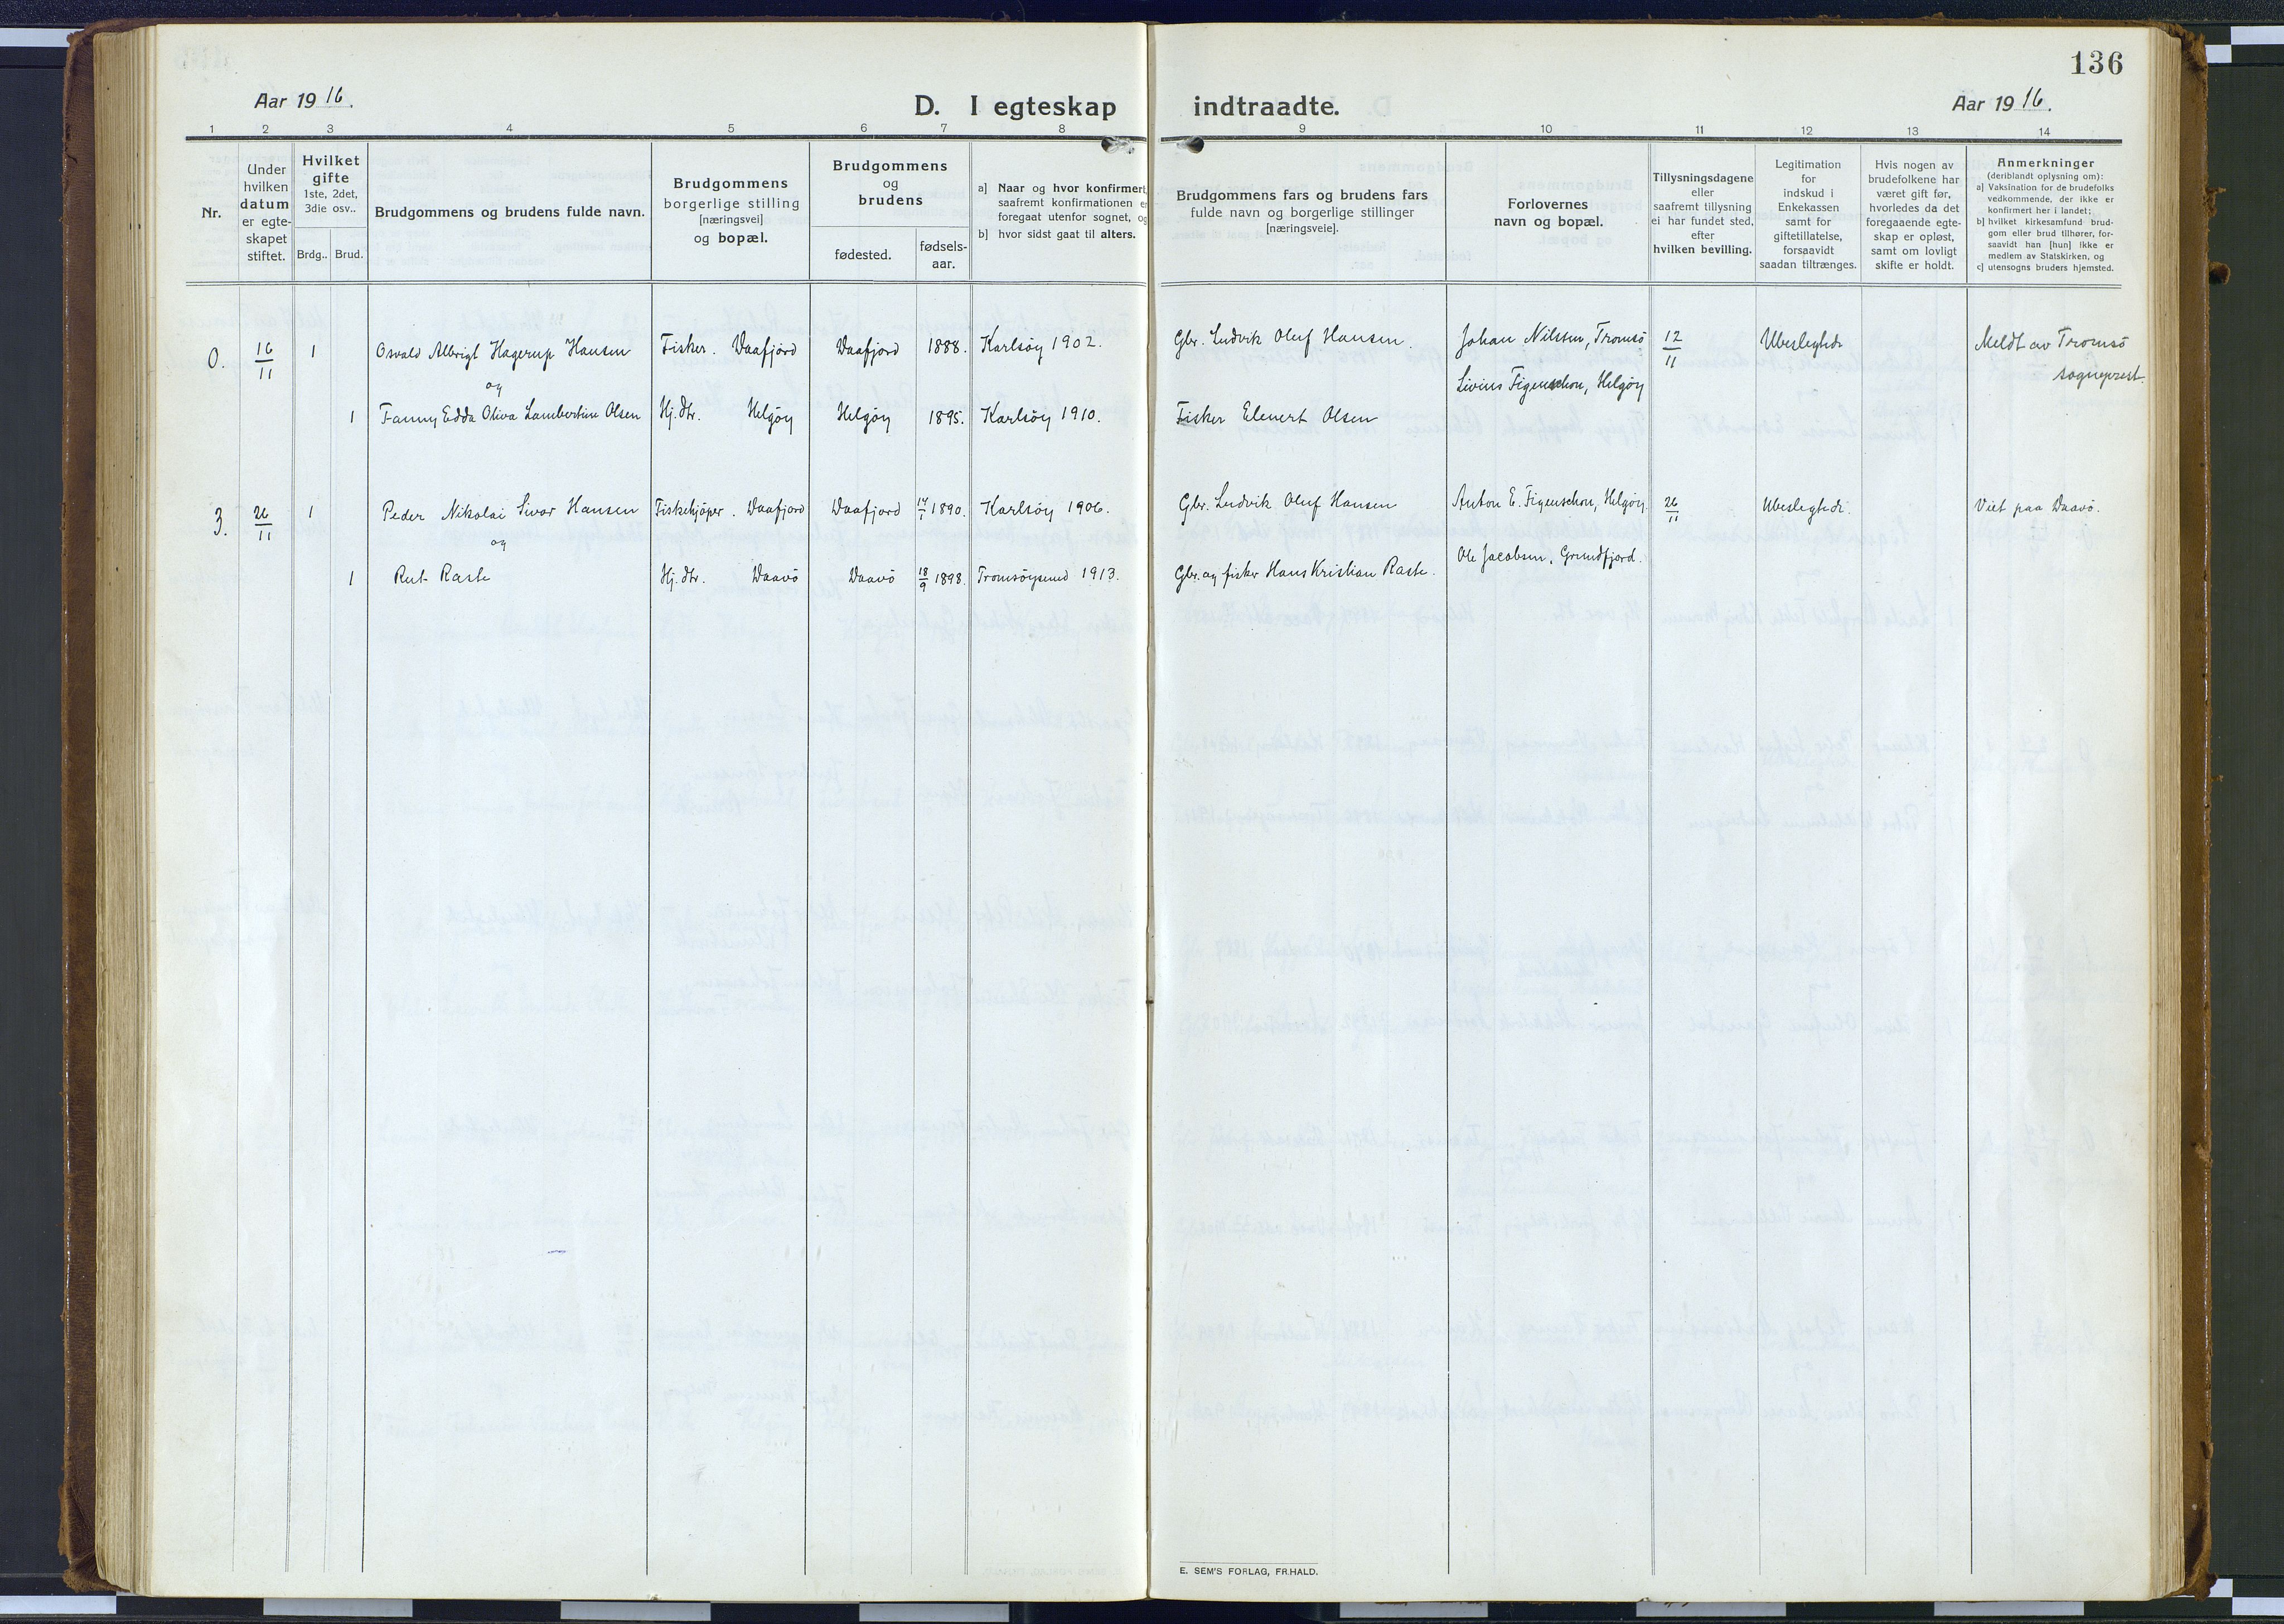 136
Aar 1916.
D. I egteskap indtraadte.
Aar 1916.
1 2 3 4 5 6 7 8 9 10 11 12 13 14
Nr.
Under
hvilken
datum
er egte-
skapet
stiftet.
Hvilket
gifte
1ste, 2det,
3die osv..
Brdg.. Brud.
Brudgommens og brudens fulde navn.
Brudgommens
borgerlige stilling
[næringsvei]
og bopæl.
Brudgommens
og
brudens
fødested.
fødsels-
aar.
a] Naar og hvor konfirmert,
saafremt konfirmationen er
foregaat utenfor sognet, og
b] hvor sidst gaat til alters.
Brudgommens fars og brudens fars
fulde navn og borgerlige stillinger
[næringsveie].
Forlovernes
navn og bopæl.
Tillysningsdagene
eller
saafremt tillysning
ei har fundet sted,
efter
hvilken bevilling.
Legitimation
for
indskud i
Enkekassen
samt for
giftetillatelse,
forsaavidt
saadan tiltrænges.
Hvis nogen av
brudefolkene har
været gift før,
hvorledes da det
foregaaende egte-
skap er opløst,
samt om lovligt
skifte er holdt.
Anmerkninger
(deriblandt oplysning om):
a] Vaksination for de brudefolks
vedkommende, der ikke er
konfirmert her i landet;
b] hvilket kirkesamfund brud-
gom eller brud tilhører, for-
saavidt han [hun] ikke er
medlem av Statskirken, og
c] utensogns bruders hjemsted.
0. 16/11 1 Osvald Albrigt Hagerup Hansen Fisker. Vaafjord Vaafjord 1888. Karlsöy 1902. Gbr. Ludvik Oluf Hansen. Johan Nilsen, Tromsö 12/11 Ubeslegtede Meldt av Tromsö
og Livius Figenschou, Helgöy sogneprest.
1 Fanny Edda Oliva Lambertine Olsen Hj. dtr. Helgöy Helgöy 1895. Karlsöy 1910. Fisker Elenert Olsen
3. 26/11 1 Peder Nikolai Sivar Hansen Fiskekjøper. Vaafjord Vaafjord 14/1 1890. Karlsöy 1906. Gbr. Ludvik Oluf Hansen Anton E. Figenschou, Helgöy. 26/11 Ubeslegtede. Viet paa Vaavö.
og Ole Jacobsen, Grundfjord.
1 Rut Raste Hj. dtr. Vaavö Vaavö 18/9 1898. Tromsöysund 1913. Gbr. og fisker Hans Kristian Raste.
E. SEM'S FORLAG, FR.HALD.